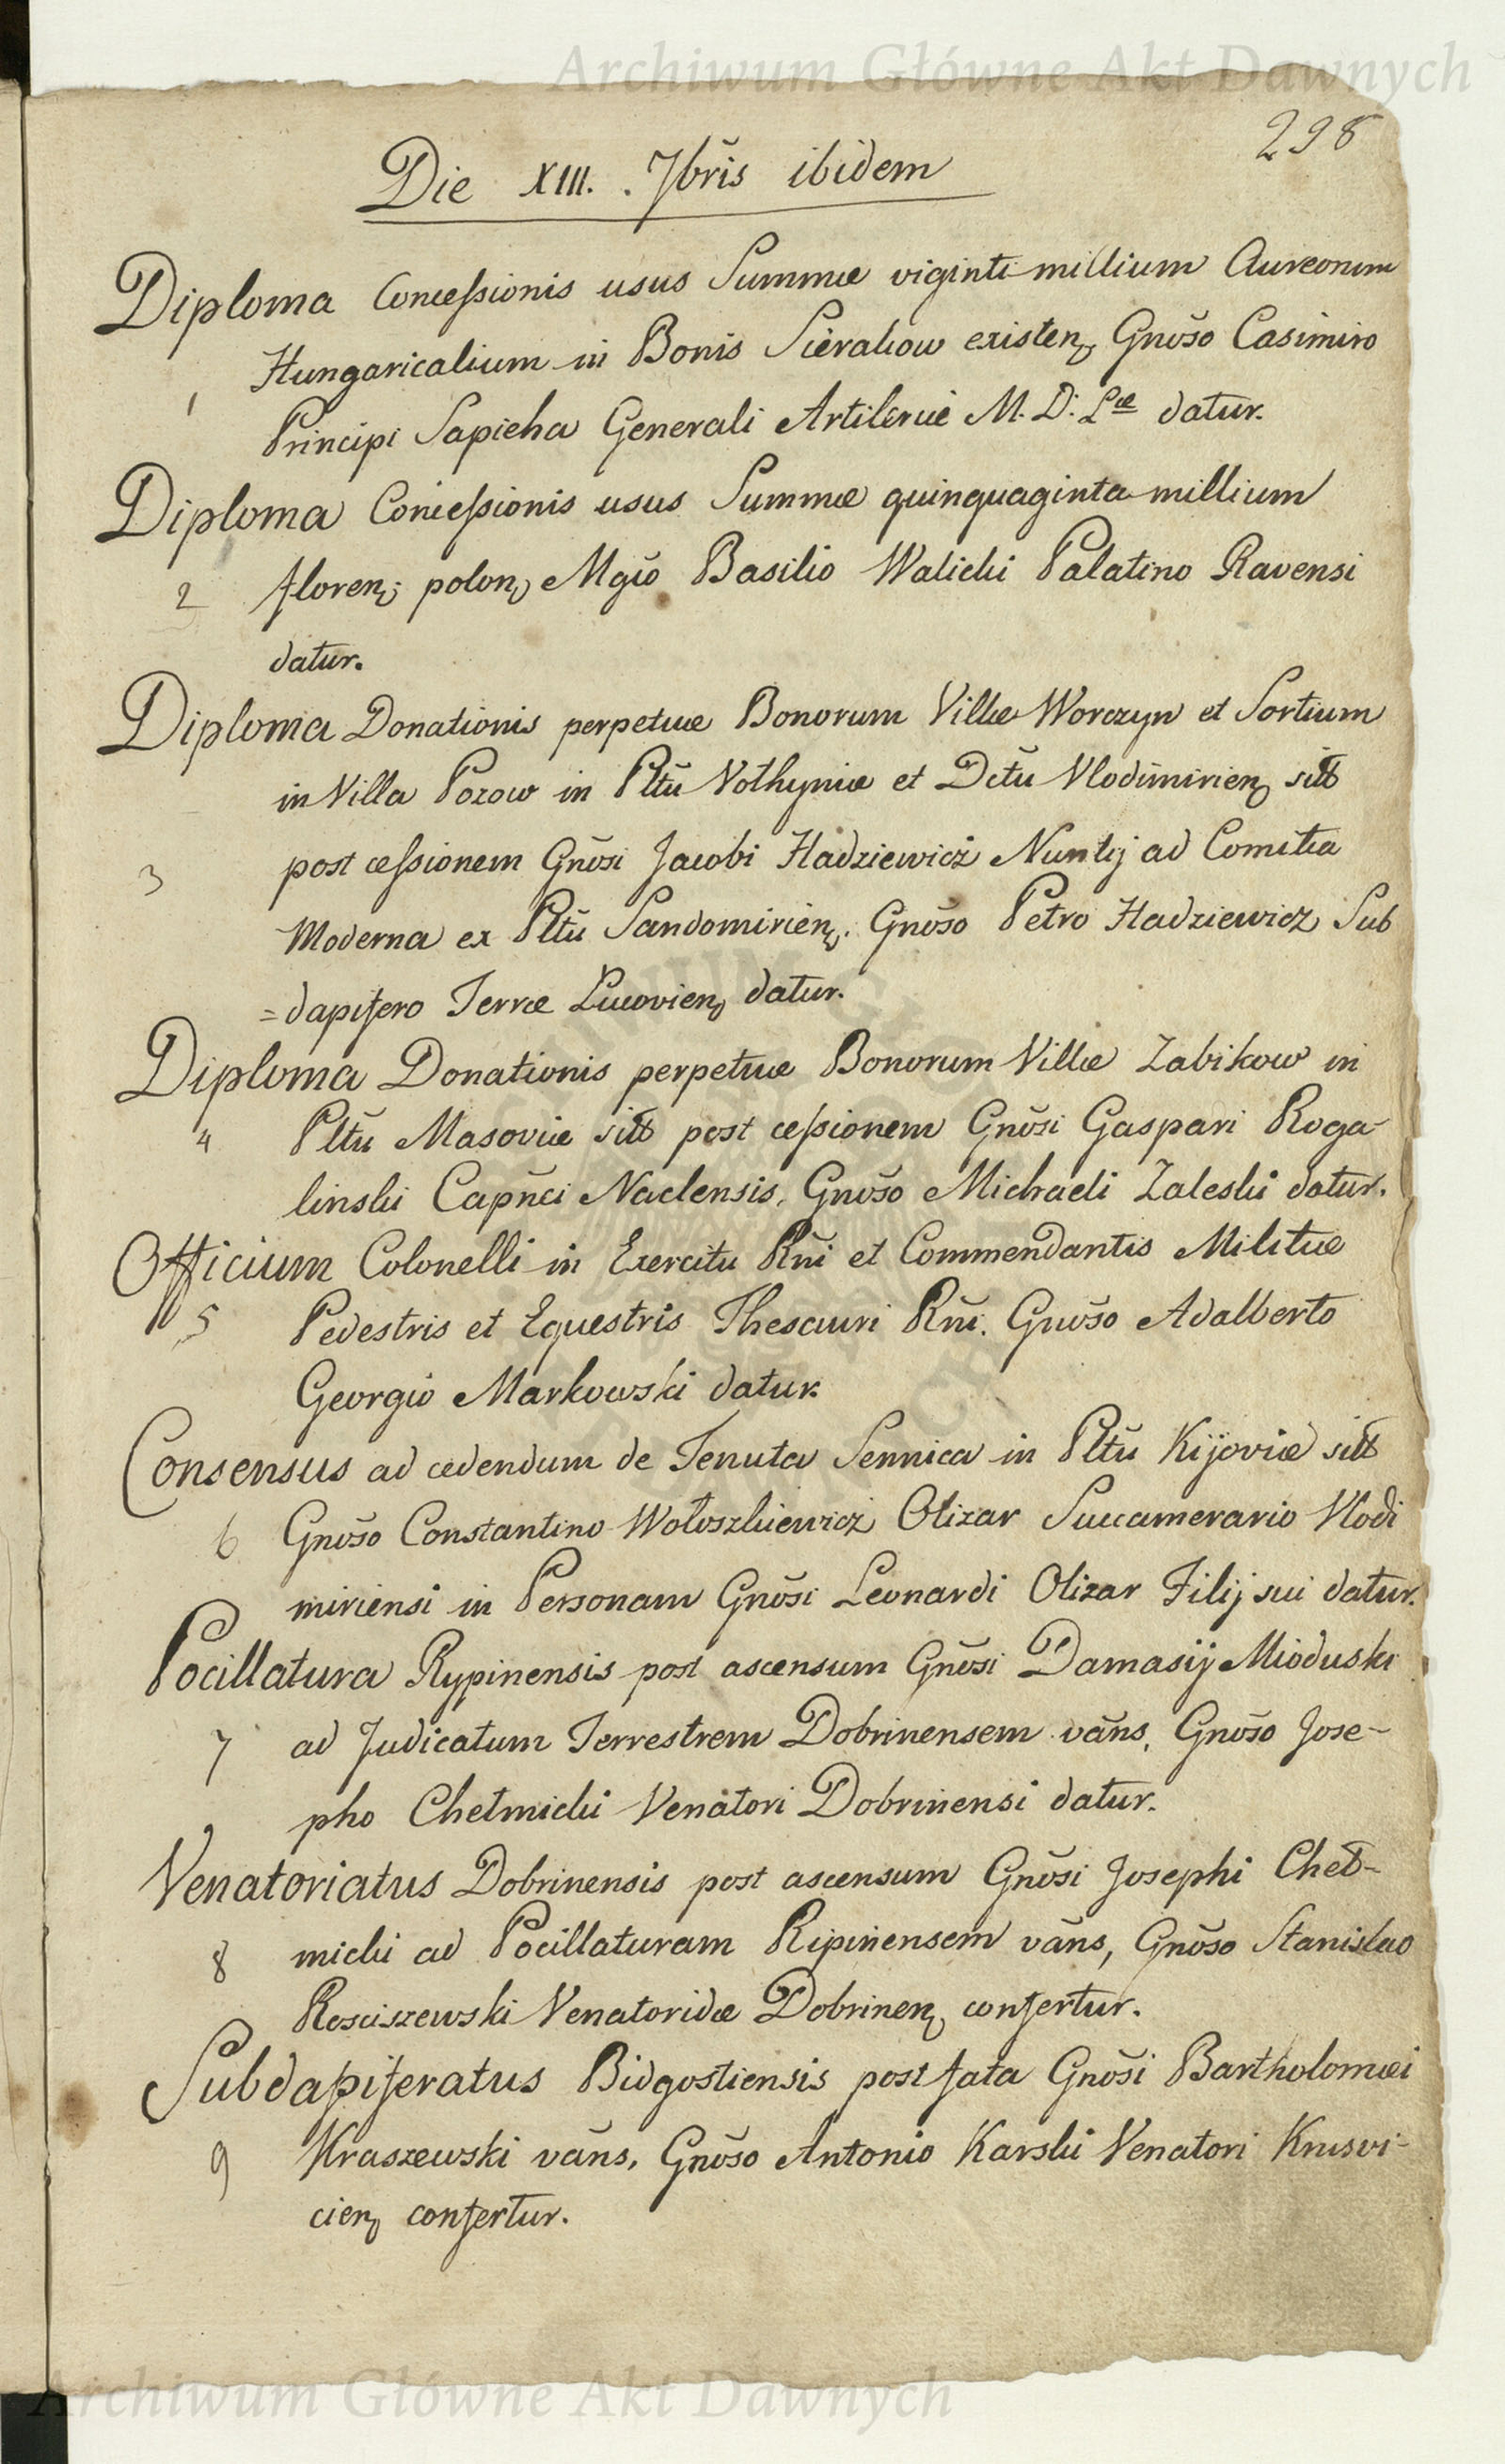 Archiwum Główne Akt Dawnych
298
Die XIII. 7bris ibidem
Diploma Concessionis usus Summæ viginti millium Aureorum
1 Hungaricalium in Bonis Sierakow existen. Gnõso Casimiro
Principi Sapieha Generali Artileriæ M. D. Læ datur.
Diploma Concessionis usus Summæ quinquaginta millium
2 floren. polon. Mgcõ Basilio Walicki Palatino Ravensi
datur.
Diploma Donationis perpetuæ Bonorum Villæ Worczyn et Sortium
in Villa Pozow in Pltũ Volhyniæ et Dctũ Vlodimirien. sitt
3 post cessionem Gnõsi Jacobi Hadziewicz Nuntij ad Comitia
Moderna ex Pltũ Sandomirien. Gnõso Petro Hadziewicz Sub
=dapifero Terræ Lucovien. datur.
Diploma Donationis perpetuæ Bonorum Villæ Zabikow in
4 Pltũ Masoviæ sitt post cessionem Gnõsi Gaspari Roga-
linski Capñei Naclensis, Gnõso Michaeli Zaleski datur.
Officium Colonelli in Exercitu Rñi et Commendantis Militiæ
5 Pedestris et Equestris Thesauri Rñi. Gnõso Adalberto
Georgio Markowski datur.
Consensus ad cedendum de Tenuta Sennica in Pltũ Kijoviæ sitt
6 Gnõso Constantino Wołoszkiewicz Olizar Succamerario Vlodi
miriensi in Personam Gnõsi Leonardi Olizar Filij sui datur.
Pocillatura Rypinensis post ascensum Gnõsi Damasij Mioduski
7 ad Judicatum Terrestrem Dobrinensem vãns, Gnõso Jose-
pho Chełmicki Venatori Dobrinensi datur.
Venatoriatus Dobrinensis post ascensum Gnõsi Josephi Cheł-
8 micki ad Pocillaturam Ripinensem vãns, Gnõso Stanislao
Rosciszewski Venatoridæ Dobrinen. confertur.
Subdapiferatus Bidgostiensis post fata Gnõsi Bartholomæi
9 Kraszewski vãns, Gnõso Antonio Karski Venatori Krusvi-
cien. confertur.
Archiwum Główne Akt Dawnych